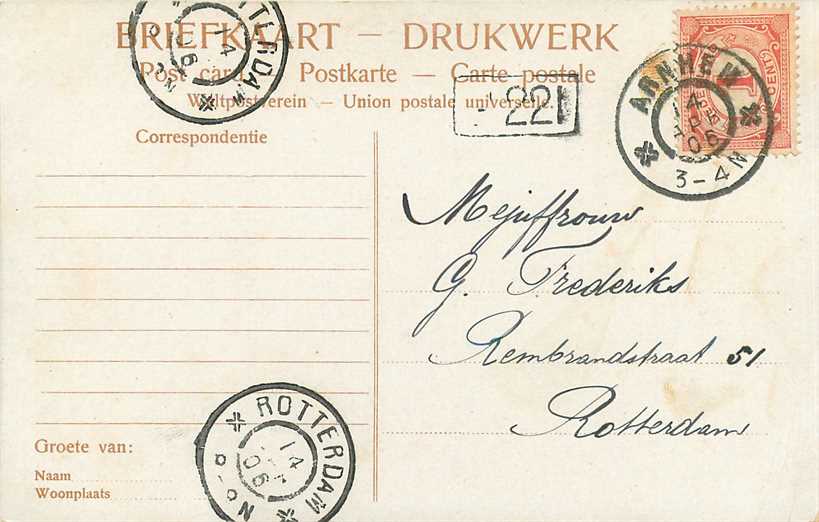 BRIEFKAART — DRUKWERK
Post card — Postkarte — Carte postale
Weltpostverein — Union postale universelle.
Correspondentie
221
ARNHEM
14
APR
06
3-4N
1
CENT
ROTTERDAM
14
06
Mejuffrouw
G. Frederiks
Rembrandstraat 51
Rotterdam
ROTTERDAM
14
06
Groete van:
Naam
Woonplaats